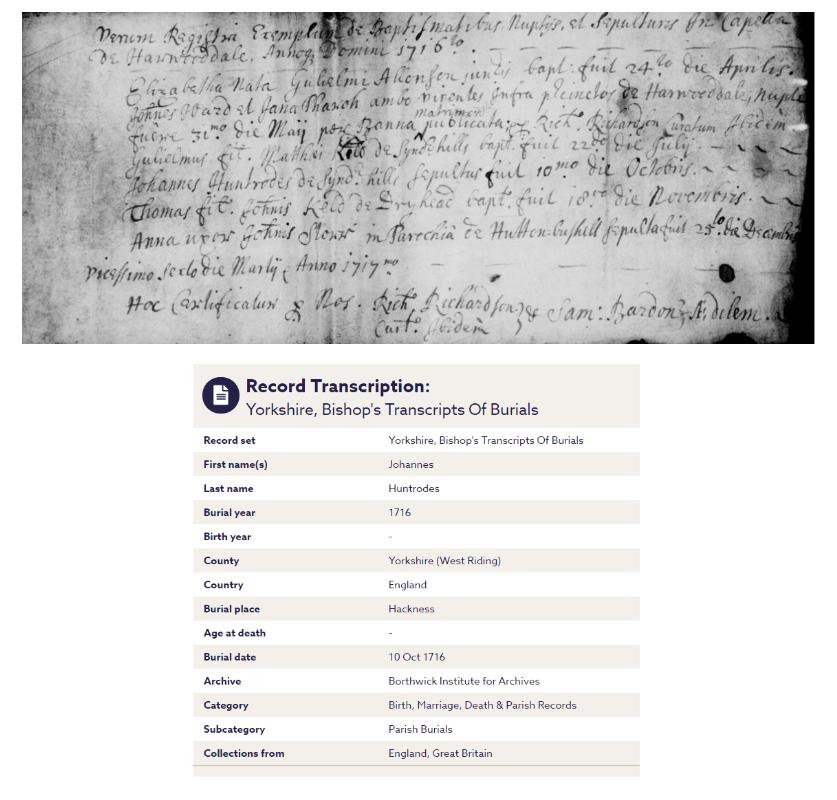 Verum Registri Exemplum de Baptismatibus, Nuptijs, et Sepulturis in Capella
de Harwooddale, Annoq Domini 1716to.
Elizabetha Nata Gulielmi Allenson junris bapt: fuit 24to die Aprilis.
Johnes Ward et Jana Pharoh ambo virentes infra precinctos de Harwooddale, Nupti
matrimon
fuêre 31mo die Maij per Banna publicata, p Richd. Richardson Curatum Ibidem
Gulielmus fil. Matthæi Keld de Synd:hills bapt. fuit 22do die July.
Johannes Huntrodes de Synd:hills Sepultus fuit 10mo die Octobris.
Thomas fil. Johnis Keld de Dryhead bapt. fuit 18vo die Novembris.
Anna uxor Johnis Stows in Parochiâ de Hutton-bushell Sepulta fuit 25to die Decembris
vicessimo sexto die Martij Anno 1717mo
Hoc Certificatur p Nos. Richd. Richardson & Sam: Bardon, Ædilem.
Curt. Ibidem
Record Transcription:
Yorkshire, Bishop's Transcripts Of Burials
Record set Yorkshire, Bishop's Transcripts Of Burials
First name(s) Johannes
Last name Huntrodes
Burial year 1716
Birth year -
County Yorkshire (West Riding)
Country England
Burial place Hackness
Age at death -
Burial date 10 Oct 1716
Archive Borthwick Institute for Archives
Category Birth, Marriage, Death & Parish Records
Subcategory Parish Burials
Collections from England, Great Britain